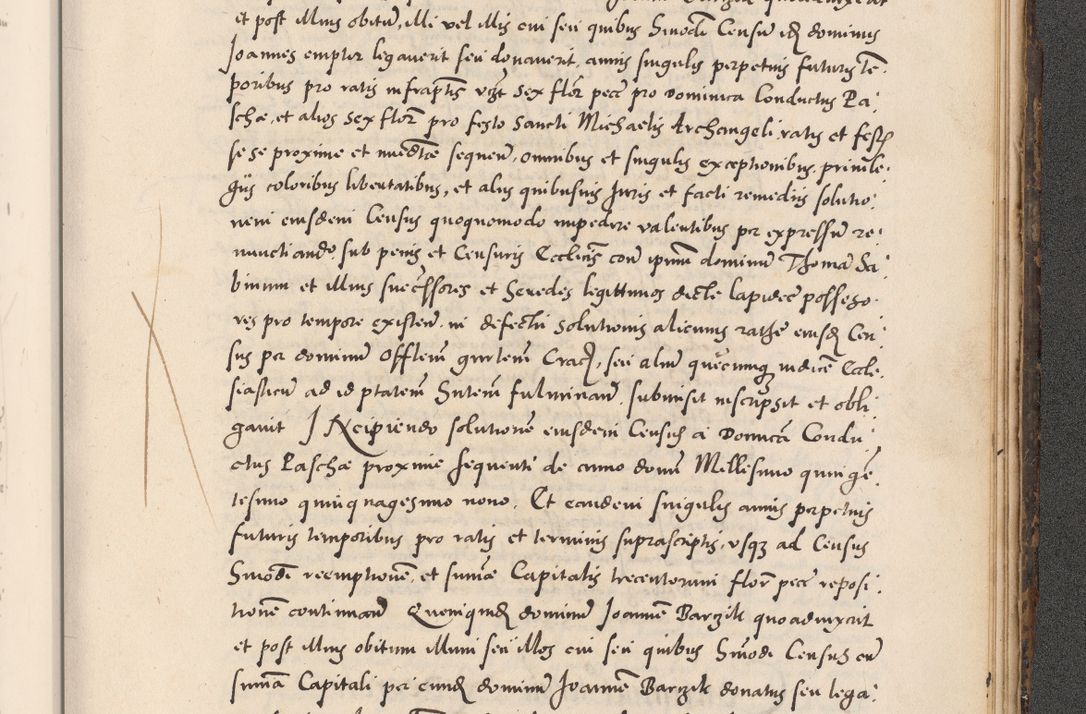 et post illius obitū, illi vel illis cui seu quibus Smōdi Censū idē dominus
Joannes emptor legauerit seu donauerit, annis singulis perpetuis futuris tē-
poribus pro ratis infraptis vzt sex flor pecē pro Dominica Conductus Pa-
schæ, et alios sex flor pro festo Sancti Michaelis Archangeli ratis et fest
se se proxime et immedtæ sequeñ, omnibus et singulis exceptionibus, priuile-
gijs coloribus libertatibus, et alijs quibusuis Juris et facti remedijs solutio-
nem eiusdem Census quoquomodo impedire valentibus per expressū re-
nunctiando, sub penis et Censuris Ecclicis cou ipsum dominū Thomā Sa-
binum et illius successores et Heredes legittimos dicte lapidee possesso-
res pro tempore existeñ, in defectu Solutionis alicuius ratæ eiusd Cen-
sus per dominū Offlem gnrlem Crac, seu aliū quecumq iudicē Eccle-
siasticū ad id ptatem Sntem fulminañ. submisit inscripsit et obli-
gauit Incipiendo solutionē eiusdem Census a Domca Condu-
ctus Paschæ proxime sequenti de anno domi Millesimo quingē-
tesimo quinquagesimo nono. Et eandem singulis annis perpetuis
futuris temporibus pro ratis et terminis suprascriptis, vsq ad Census
Smōdi reemptionē, et sumæ Capitalis trecentorum flor pecē reposi-
tionē continuañ Quemquid dominū Joannē Barzik quoaduixerit
et post illius obitum illum seu illos cui seu quibus Smōdi Census cū
sumā Capitali per eund dominū Joannē Barzik donatus seu lega-